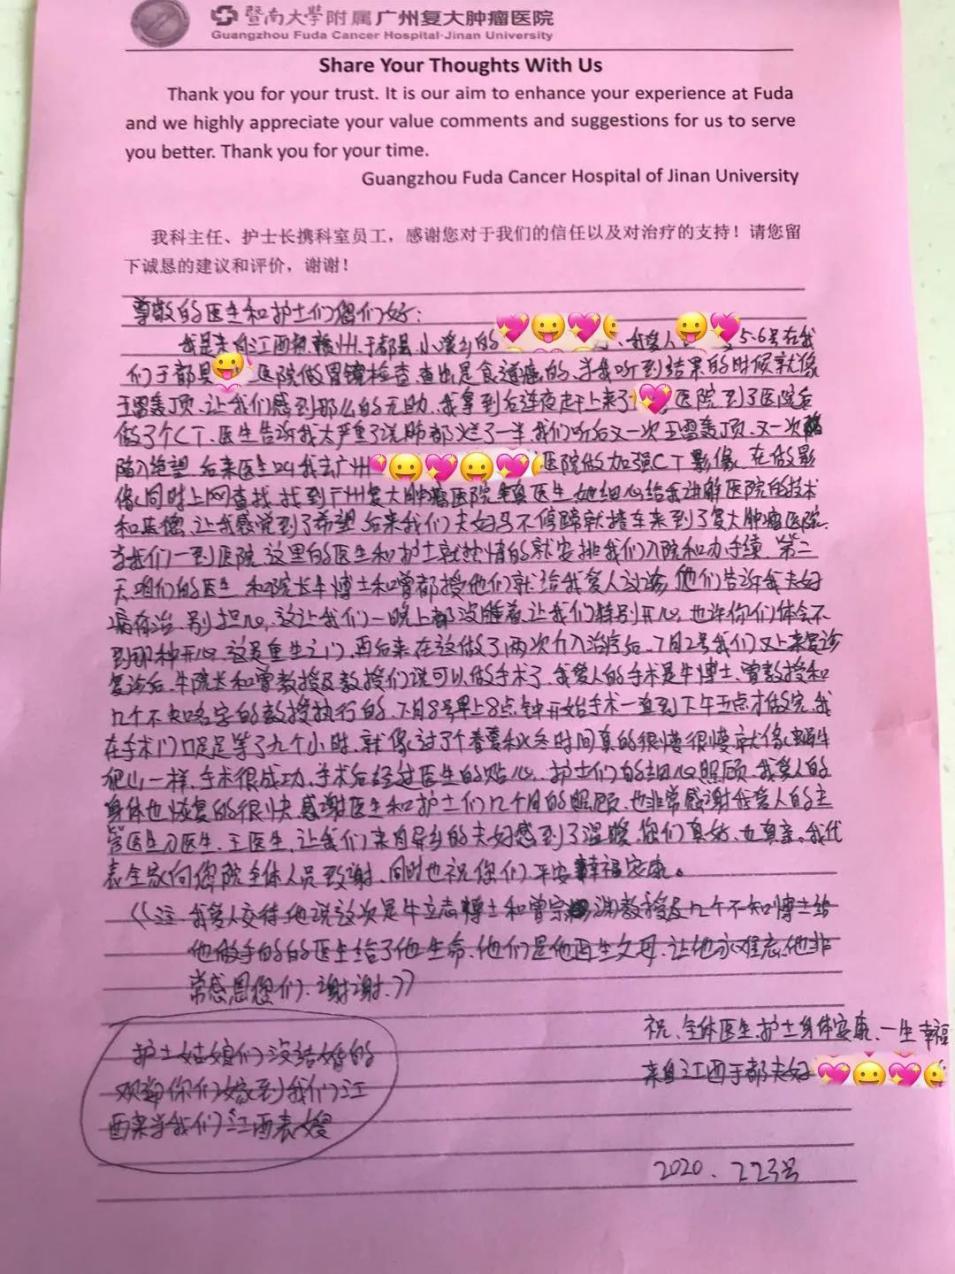 暨南大學附属广州复大肿瘤医院
Guangzhou Fuda Cancer Hospital·Jinan University
Share Your Thoughts With Us
Thank you for your trust. It is our aim to enhance your experience at Fuda
and we highly appreciate your value comments and suggestions for us to serve
you better. Thank you for your time.
Guangzhou Fuda Cancer Hospital of Jinan University
我科主任、护士长携科室员工，感谢您对于我们的信任以及对治疗的支持！请您留
下诚恳的建议和评价，谢谢！
尊敬的医生和护士们您们好：
我是来自江西赣州、于都县、小溪乡的 我爱人 5.6号在我
们于都县 医院做胃镜检查、查出是食道癌的、当我听到结果的时候就像
五雷轰顶、让我们感到那么的无助、我拿到后连夜赶上来了 医院、到了医院后
做了个CT、医生告诉我太严重了说肺都烂了一半、我们听后又一次五雷轰顶、又一次
陷入绝望、后来医生叫我去广州 医院做加强CT影像、在做影
像、同时上网查找、找到广州复大肿瘤医院 医生、她细心给我讲解医院的技术
和医德、让我感觉到了希望、后来我们夫妇马不停蹄就搭车来到了复大肿瘤医院、
当我们一到医院、这里的医生和护士就热情的就安排我们入院和办手续、第二
天咱们的医生、和院长牛博士和曾教授他们就给我爱人 他们告诉我夫妇
病有治、别担心、这让我们一晚上都没睡着、让我们特别开心、也许你们体会不
到那种开心、这是重生之门、再后来在这做了两次介入治疗后、7月2号我们又上来复诊
复诊后、牛院长和曾教授及教授们说可以做手术了、我爱人的手术是牛博士、曾教授和
几个不知名字的教授执行的、7月8号早上8点钟开始手术一直到下午五点才做完、我
在手术门口足足等了九个小时、就像过了个春夏秋冬时间真的很慢很慢就像蜗牛
爬山一样、手术很成功、手术后经过医生的贴心、护士们的细心照顾、我爱人的
身体也恢复的很快、感谢医生和护士们几个月的照顾、也非常感谢我爱人的主
管医生刁医生、王医生、让我们来自异乡的夫妇感到了温暖、您们真好、也真亲、我代
表全家向您院全体人员致谢、同时也祝您们平安幸福安康。
《注 我爱人交待他说这次是牛立志博士和曾宗渊教授及几个不知博士给
他做手的的医生给了他生命、他们是他再生父母、让他永难忘、他非
常感恩您们、谢谢、》
祝、全体医生、护士身体安康、一生幸福
来自江西于都夫妇
护士姑娘们没结婚的
欢迎你们嫁到我们江
西来当我们江西表嫂
2020.7.23号